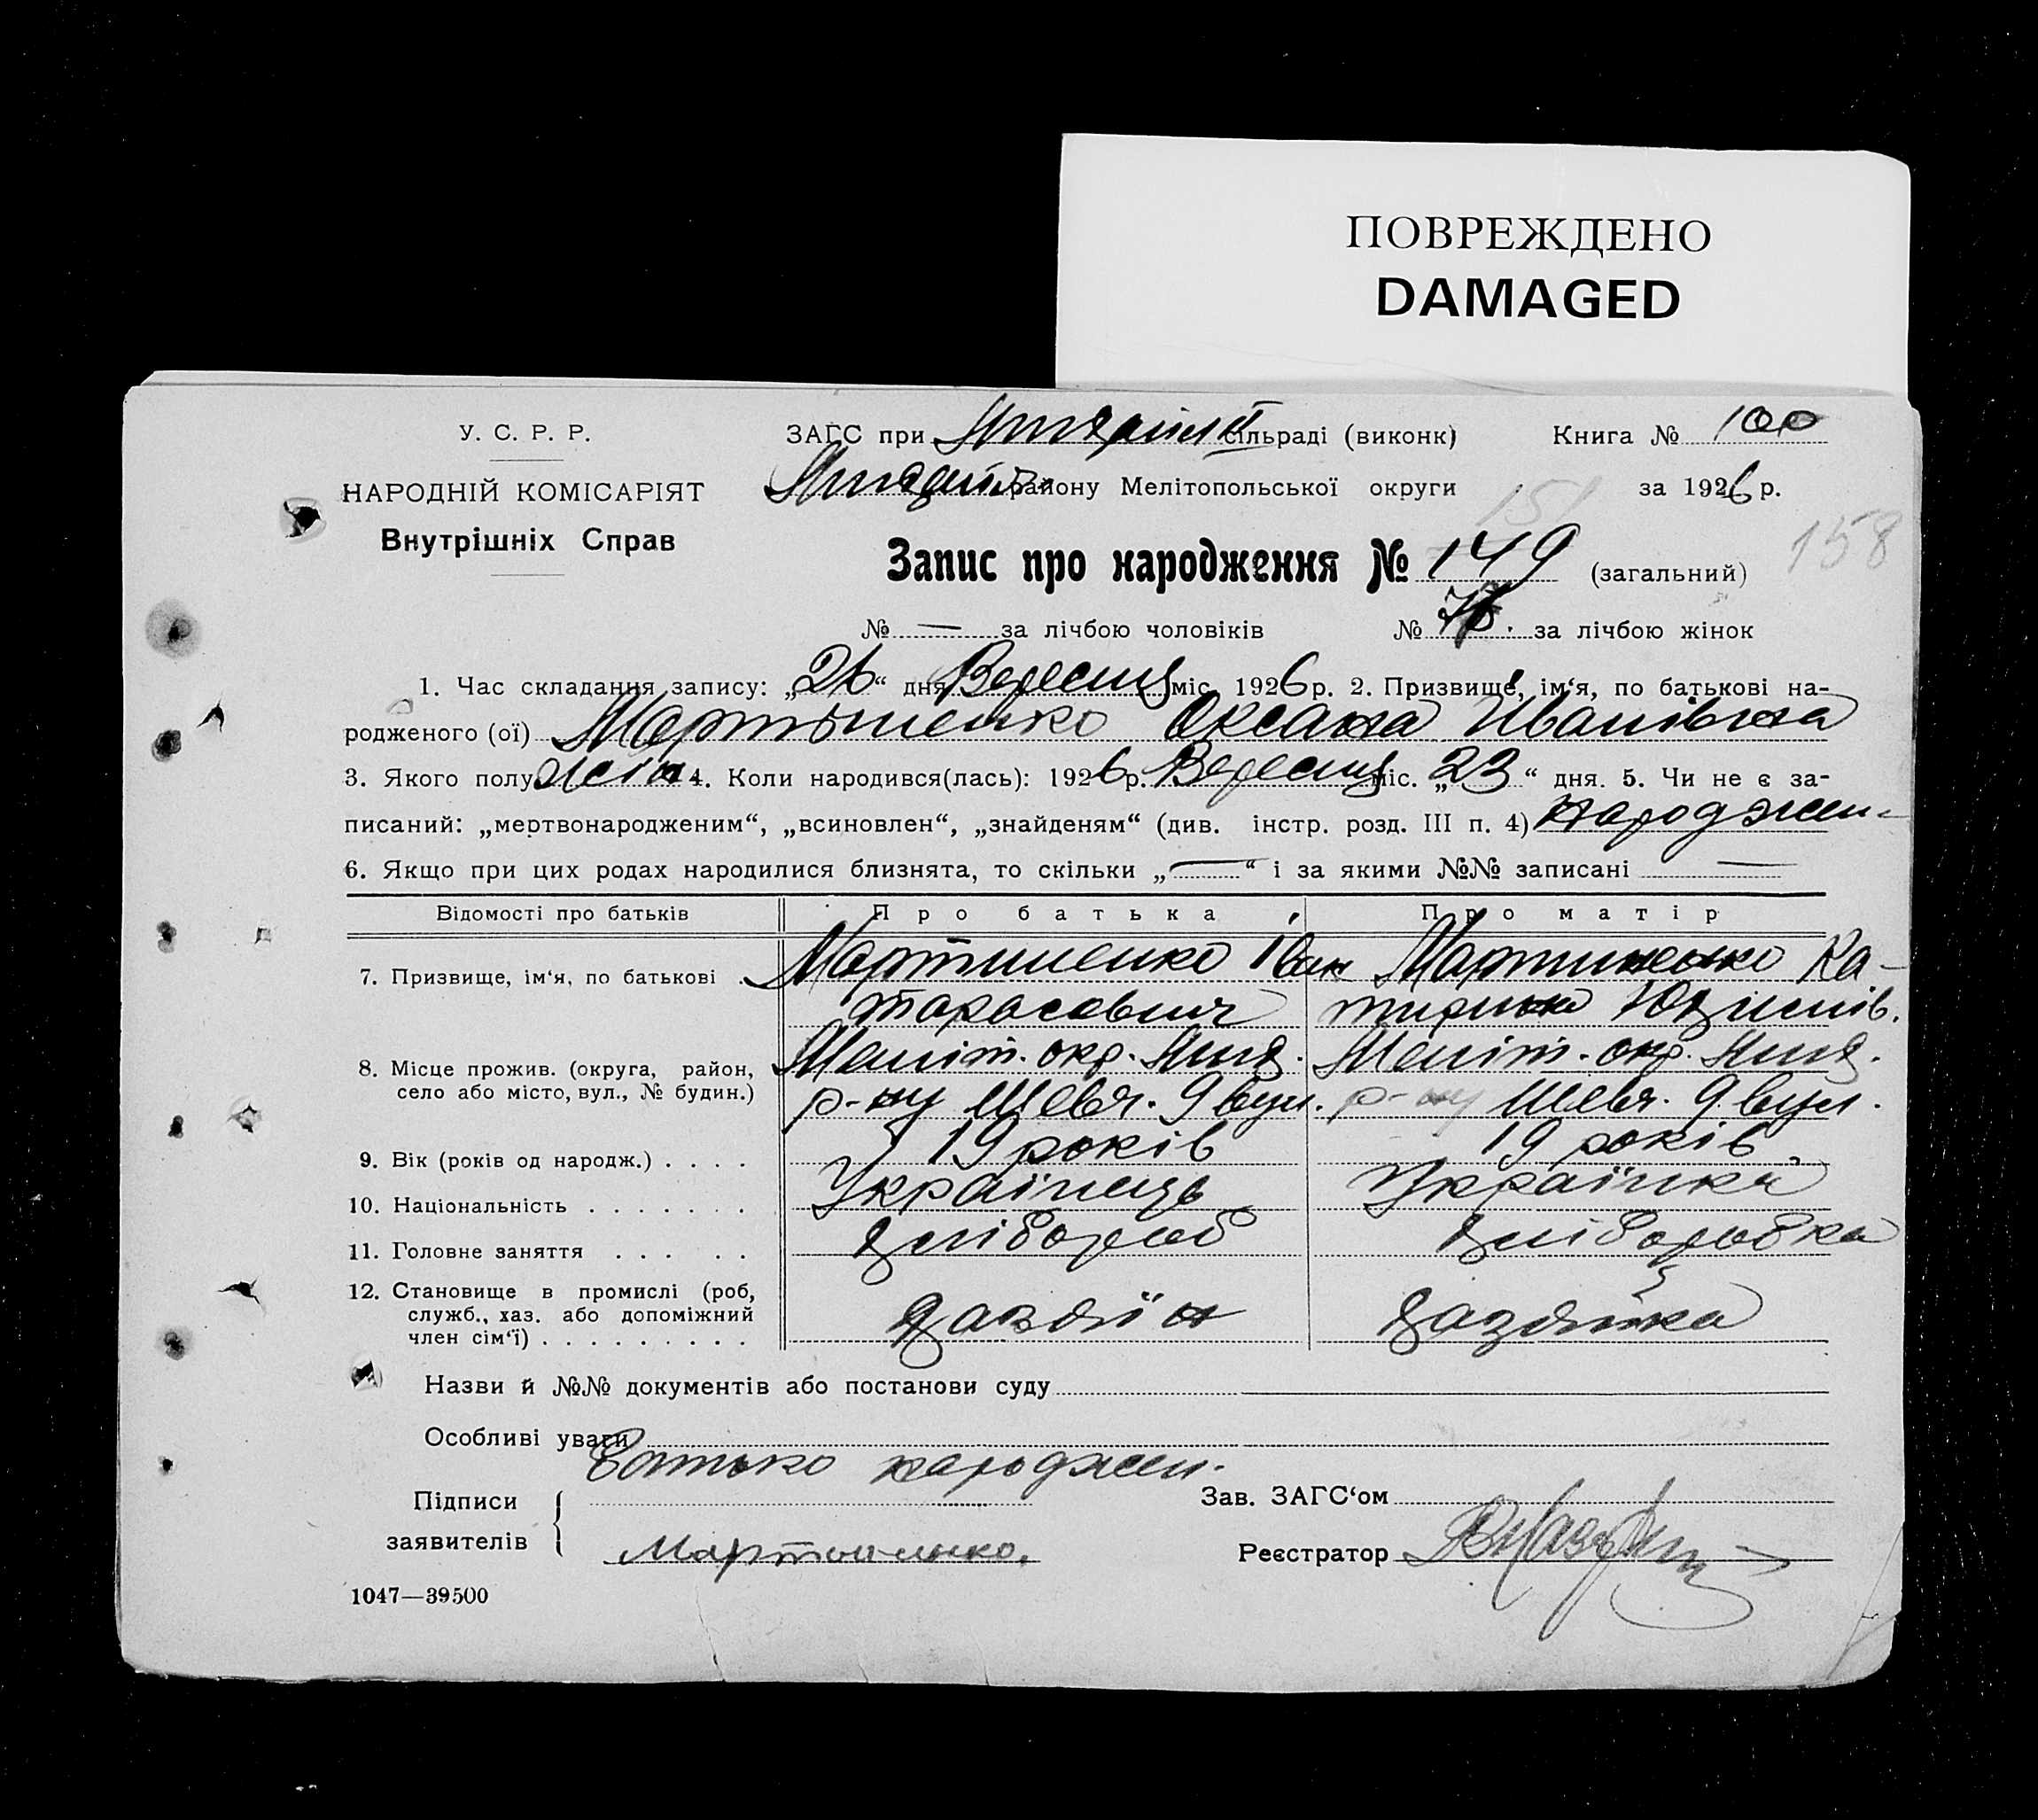 ПОВРЕЖДЕНО
DAMAGED
У. С. Р. Р.
НАРОДНІЙ КОМІСАРІЯТ
Внутрішніх Справ
ЗАГС при сільраді (виконк)
району Мелітопольської округи
Книга № 100
за 1926 р.
151
158
Запис про народження № 149 (загальний)
№ — за лічбою чоловіків № за лічбою жінок
1. Час складання запису: „26“ дня Вересня міс. 1926 р. 2. Призвище, ім‘я, по батькові на-
родженого (ої) Мартыненко Оксана Иванівна
3. Якого полу жін 4. Коли народився(лась): 1926 р. Вересня міс. „23“ дня. 5. Чи не є за-
писаний: „мертвонародженим“, „всиновлен“, „знайденям“ (див. інстр. розд. III п. 4) народжен-
6. Якщо при цих родах народилися близнята, то скільки „—“ і за якими №№ записані —
Відомості про батьків Про батька Про матір
7. Призвище, ім‘я, по батькові . Мартиненко Іван Мартиненко Ка-
тарасович терина
8. Місце прожив. (округа, район, Меліт. окр. Меліт. окр.
село або місто, вул., № будин.) р-ну Шевч. 9 вул. р-ну Шевч. 9 вул.
9. Вік (років од народж.) . . . . 19 років 19 років
10. Національність . . . . . . . Українець Українка
11. Головне заняття . . . . . хлібороб хліборобка
12. Становище в промислі (роб,
служб., хаз. або допоміжний хазяїн хазяйка
член сім‘ї) . . . . . . . . .
Назви й №№ документів або постанови суду
Особливі уваги
Батько народжен.
Підписи
заявителів
Мартыненко.
Зав. ЗАГС‘ом
Реєстратор
1047—39500